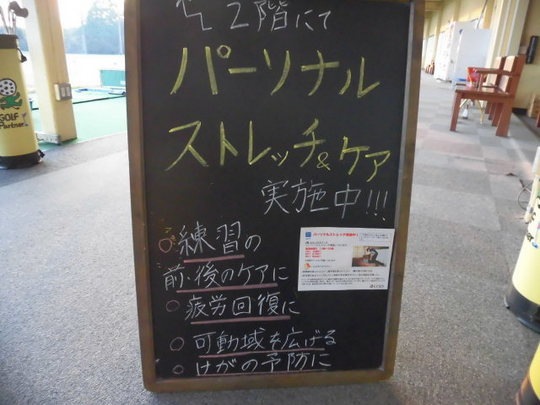 2階にて
パーソナル
ストレッチ&ケア
実施中!!!
○練習の
前・後のケアに
○疲労回復に
○可動域を広げる
○けがの予防に
GOLF
Partner